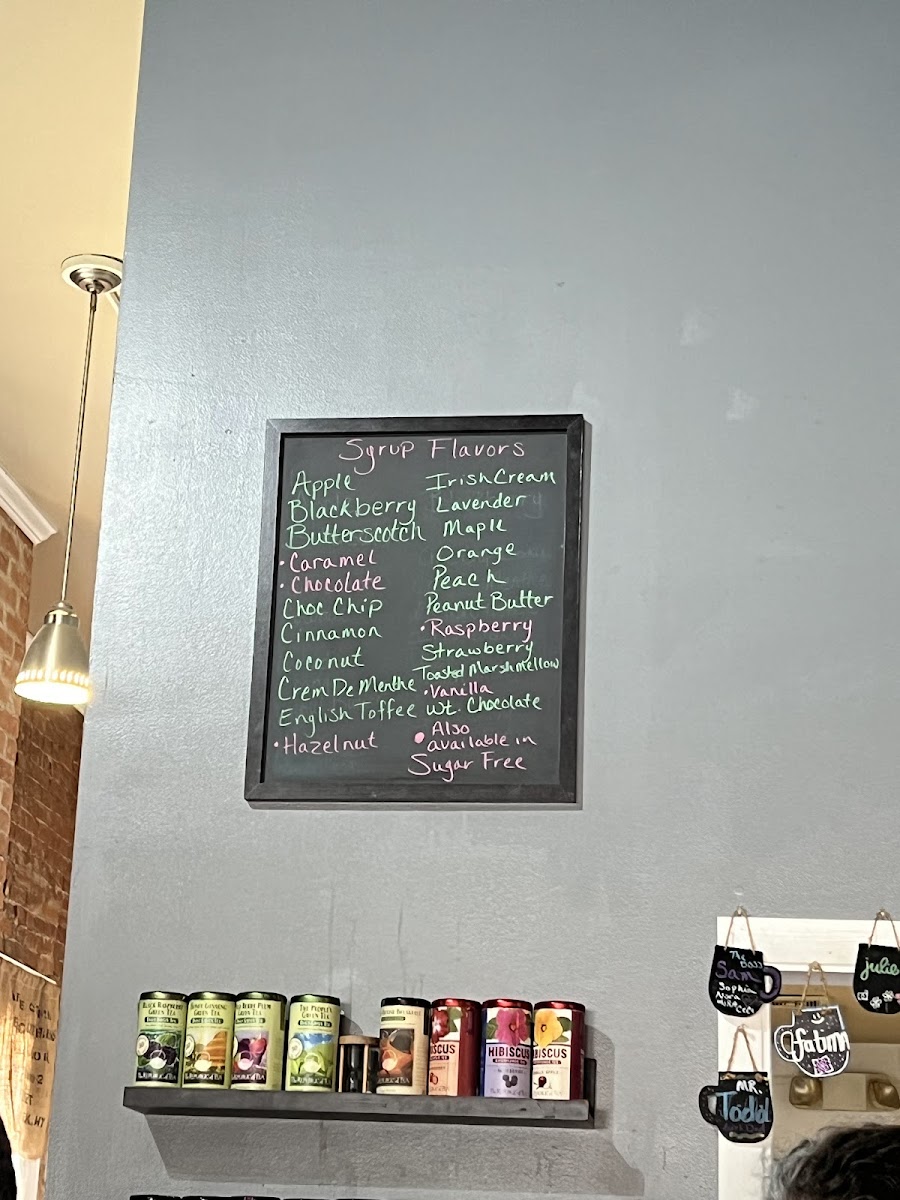 Syrup Flavors
Apple
Blackberry
Butterscotch
• Caramel
• Chocolate
Choc Chip
Cinnamon
Coconut
Crem De Menthe
English Toffee
• Hazelnut
Irish Cream
Lavender
Maple
Orange
Peach
Peanut Butter
• Raspberry
Strawberry
Toasted Marshmellow
• Vanilla
Wt. Chocolate
• Also
available in
Sugar Free
BLACK RASPBERRY
GREEN TEA
HONEY GINSENG
GREEN TEA
PLUM
GREEN TEA
THE PEOPLE'S
GREEN TEA
BREAKFAST
HIBISCUS
HIBISCUS
HIBISCUS
The Boss
Sam
Sophia
Nora
julie
fatima
MR.
Todd